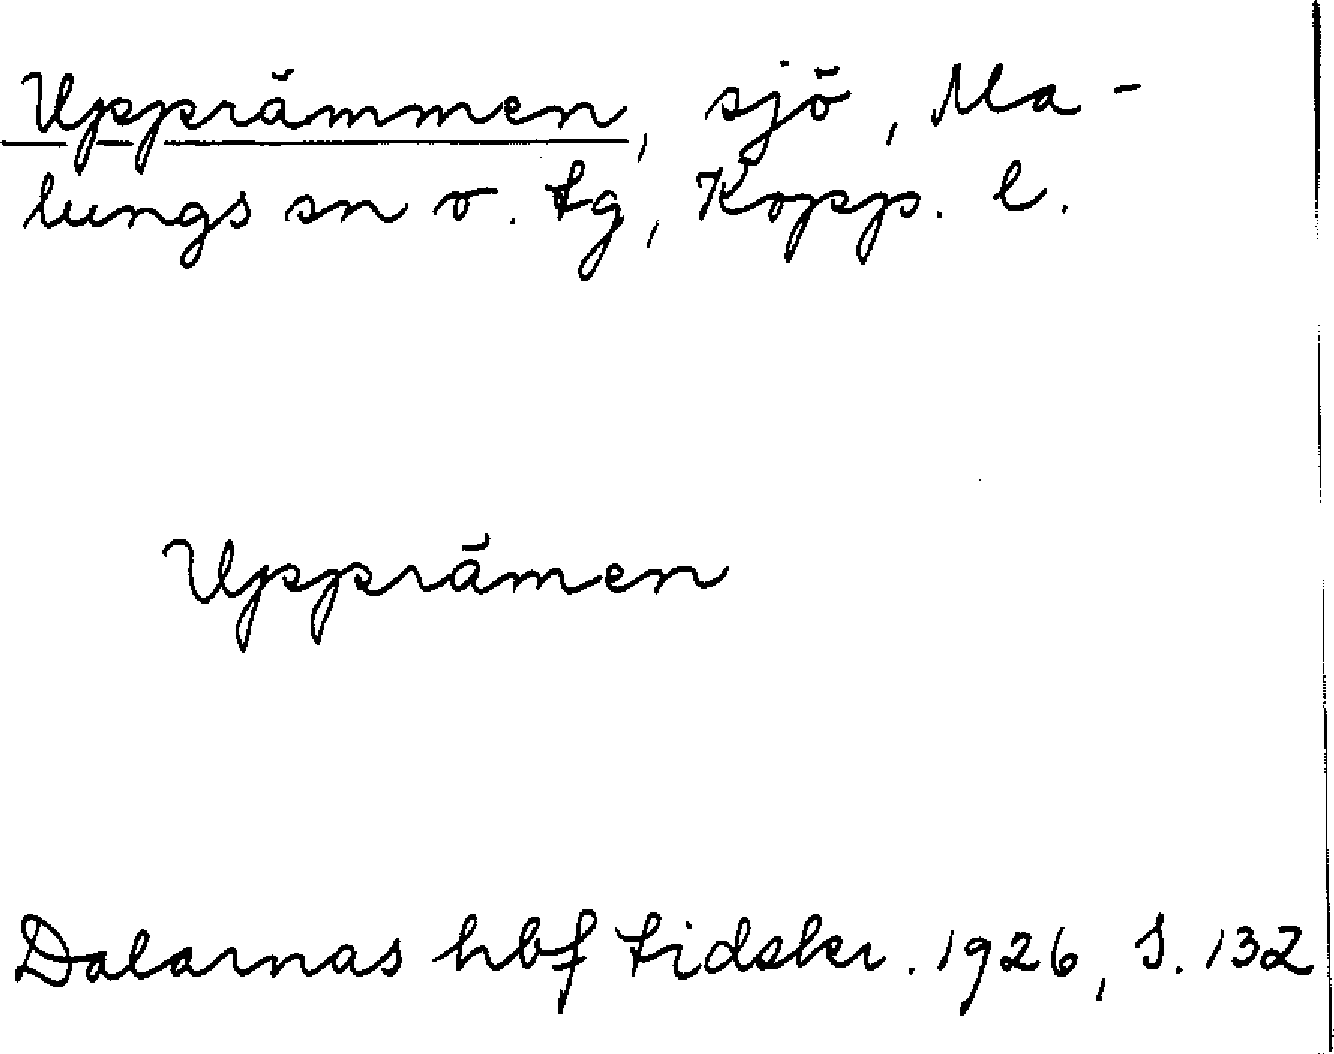 Upprämmen, sjö, Ma-
lungs sn o. tg, Kopp. l.
Upprämen
Dalarnas hbf tidskr. 1926, S. 132